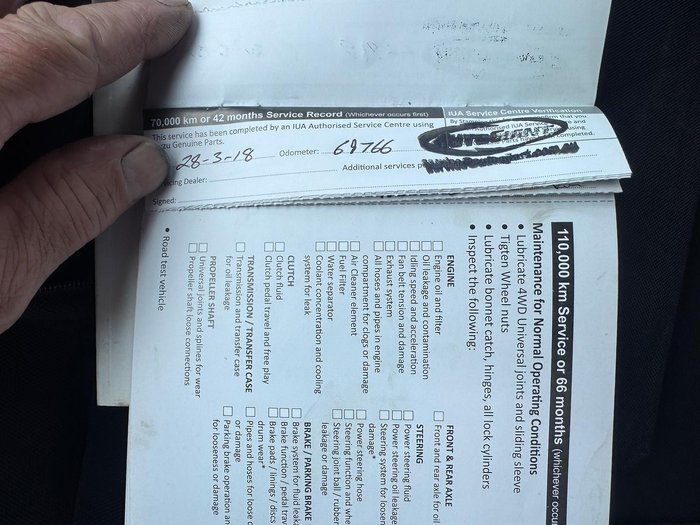 70,000 km or 42 months Service Record (Whichever occurs first)
This service has been completed by an IUA Authorised Service Centre using
zu Genuine Parts.
28-3-18 Odometer: 69766
Additional services p
cing Dealer:
Signed:
IUA Service Centre Verification
110,000 km Service or 66 months (whichever occu
Maintenance for Normal Operating Conditions
• Lubricate 4WD Universal joints and sliding sleeve
• Tigten Wheel nuts
• Lubricate bonnet catch, hinges, all lock cylinders
• Inspect the following:
ENGINE
Engine oil and filter
Oil leakage and contamination
Idling speed and acceleration
Fan belt tension and damage
Exhaust system
All hoses and pipes in engine
compartment for clogs or damage
Air Cleaner element
Fuel Filter
Water separator
Coolant concentration and cooling
system for leak
CLUTCH
Clutch fluid
Clutch pedal travel and free play
TRANSMISSION / TRANSFER CASE
Transmission and transfer case
for oil leakage
PROPELLER SHAFT
Universal joints and splines for wear
Propeller shaft loose connections
• Road test vehicle
FRONT & REAR AXLE
Front and rear axle for oil
STEERING
Power steering fluid
Power steering oil leakage
Steering system for loosen
damage*
Power steering hose
Steering function and whe
Steering joint ball / rubber
leakage or damage
BRAKE / PARKING BRAKE
Brake system for fluid leak
Brake function / pedal trav
Brake pads / linings / discs
drum wear*
Pipes and hoses for loose c
or damage
Parking brake operation an
for looseness or damage